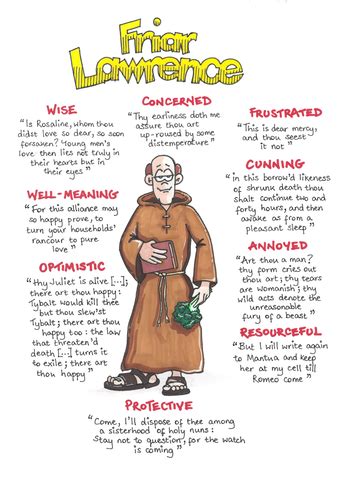 Friar
Lawrence
WISE
"Is Rosaline, whom thou
didst love so dear, so soon
forsaken? Young men's
love then lies not truly in
their hearts but in
their eyes"
CONCERNED
"Thy earliness doth me
assure thou art
up-roused by some
distemperature"
FRUSTRATED
"This is dear mercy,
and thou seest
it not"
WELL-MEANING
"For this alliance may
so happy prove, to
turn your households'
rancour to pure
love"
CUNNING
"in this borrow'd likeness
of shrunk death thou
shalt continue two and
forty hours, and then
awake as from a
pleasant sleep"
OPTIMISTIC
"thy Juliet is alive [...];
there art thou happy:
Tybalt would kill thee
but thou slew'st
Tybalt; there art thou
happy too: the law
that threaten'd
death [...] turns it
to exile; there art
thou happy"
ANNOYED
"Art thou a man?
thy form cries out
thou art; thy tears
are womanish; thy
wild acts denote the
unreasonable
fury of a beast"
RESOURCEFUL
"But I will write again
to Mantua and keep
her at my cell till
Romeo come"
PROTECTIVE
"Come, I'll dispose of thee among
a sisterhood of holy nuns:
Stay not to question, for the watch
is coming"